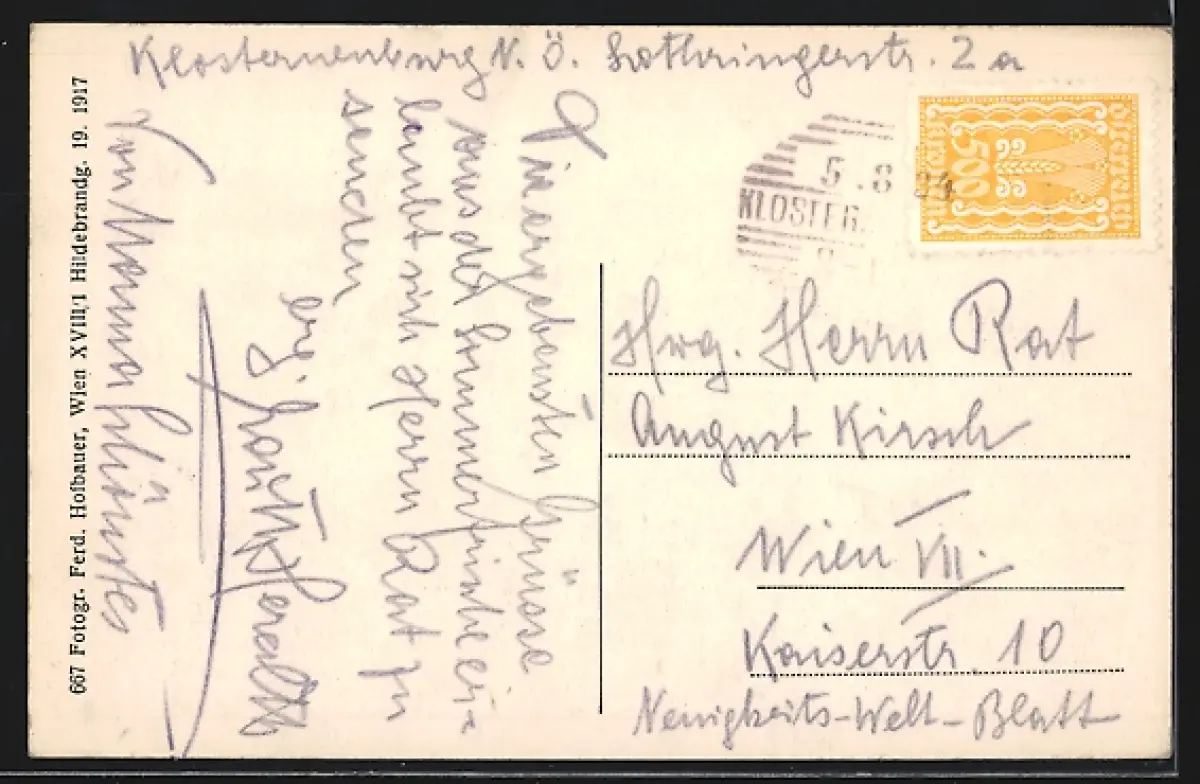 Klosterneuburg N. Ö. Lothringerstr. 2a
Die ergebensten Grüsse
aus der Sommerfrische er-
laubt sich Herrn Rat zu
senden
erg.
Von Mama schönstes
667 Fotogr. Ferd. Hofbauer, Wien XVIII/1 Hildebrandg. 19. 1917
5.8 24
KLOSTER
Österreich
500
Kronen
Hwg. Herrn Rat
August Kirsch
Wien VII.
Kaiserstr. 10
Neuigkeits-Welt-Blatt